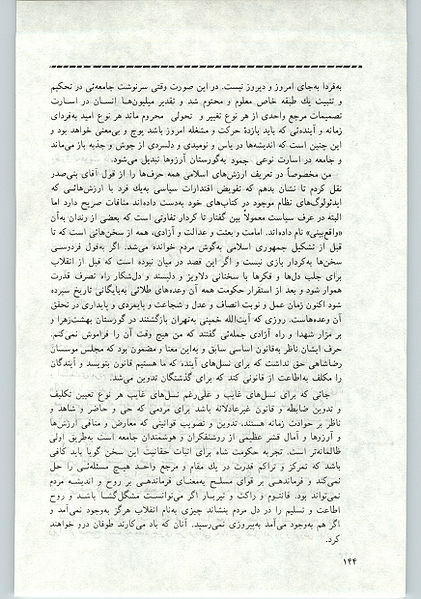 به‌فردا به‌جای امروز و دیروز نیست. در این صورت وقتی سرنوشت جامعه‌ئی در تحکیم
و تثبیت یك طبقه خاص معلوم و محتوم شد و تقدیر میلیون‌ها انسان در اسارت
تصمیمات مرجع واحدی از هر نوع تغییر و تحولی محروم ماند هر نوع امید به‌فردای
زمانه و آینده‌ئی که باید بازدهٔ حرکت و مشغله امروز باشد پوچ و بی‌معنی خواهد بود و
این چنین است که اندیشه‌ها در یاس و نومیدی و دلسردی از جوش و جذبه باز می‌ماند
و جامعه در اسارت نوعی جمود به‌گورستان آرزوها تبدیل می‌شود.
من مخصوصاً در تعریف ارزش‌های اسلامی همه حرف‌ها را از قول آقای بنی‌صدر
نقل کردم تا نشان بدهم که تفویض اقتدارات سیاسی به‌یك فرد با ارزش‌هائی که
ایدئولوگ‌های نظام موجود در کتاب‌های خود به‌دست داده‌اند منافات صریح دارد اما
البته در عرف سیاست معمولاً بین گفتار تا کردار تفاوتی است که بعضی از رندان به‌آن
«واقع‌بینی» نام داده‌اند. امامت و بعثت و عدالت و آزادی، همه از سخن‌هائی است که تا
قبل از تشکیل جمهوری اسلامی به‌گوش مردم خوانده می‌شد. اگر به‌قول فردوسی
سخن‌ها به‌کردار بازی نیست و اگر این قصد در میان نبوده است که قبل از انقلاب
برای جلب دل‌ها و فکرها با سخنانی دلاویز و دلپسند و دل‌شکار راه تصرف قدرت
هموار شود و بعد از استقرار حکومت همه آن وعده‌های طلائی به‌بایگانی تاریخ سپرده
شود اکنون زمان عمل و نوبت انصاف و عدل و شجاعت و پایمردی و پایداری در تحقق
آن وعده‌هاست. روزی که آیت‌الله خمینی به‌تهران بازگشتند در گورستان بهشت‌زهرا و
بر مزار شهدا و راه آزادی جمله‌ئی گفتند که من هیچ وقت آن را فراموش نمی‌کنم.
حرف ایشان ناظر به‌قانون اساسی سابق و به‌این معنا و مضمون بود که مجلس موسسان
رضاشاهی حق نداشت که برای نسل‌های آینده که ما هستیم قانون بنویسد و آیندگان
را مکلف به‌اطاعت از قانونی کند که برای گذشتگان تدوین می‌شد.
جائی که برای نسل‌های غایب و علی‌رغم نسل‌های غایب هر نوع تعیین تکلیف
و تدوین ضابطه و قانون غیرعادلانه باشد برای مردمی که حی و حاضر و شاهد و
ناظر بر حوادث زمانه هستند، تدوین و تصویب قوانینی که معارض و منافی ارزش‌ها
و آرزوها و آمال قشر عظیمی از روشنفکران و هوشمندان جامعه است به‌طریق اولی
ظالمانه‌تر است. تجربه حکومت شاه برای اثبات حقانیت این سخن گویا باید کافی
باشد که تمرکز و تراکم قدرت در یك مقام و مرجع واحد هیچ مسئله‌ئی را حل
نمی‌کند و فرماندهی بر قوای مسلح به‌معنای فرماندهی بر روح و اندیشه مردم
نمی‌تواند بود. فانتوم و راکت و تیربار اگر می‌توانست مشکل‌گشا باشد و روح
اطاعت و تسلیم را در دل مردم بنشاند چیزی به‌نام انقلاب هرگز به‌وجود نمی‌آمد و
اگر هم به‌وجود می‌آمد به‌پیروزی نمی‌رسید. آنان که باد می‌کارند طوفان درو خواهند
کرد.
۱۴۴